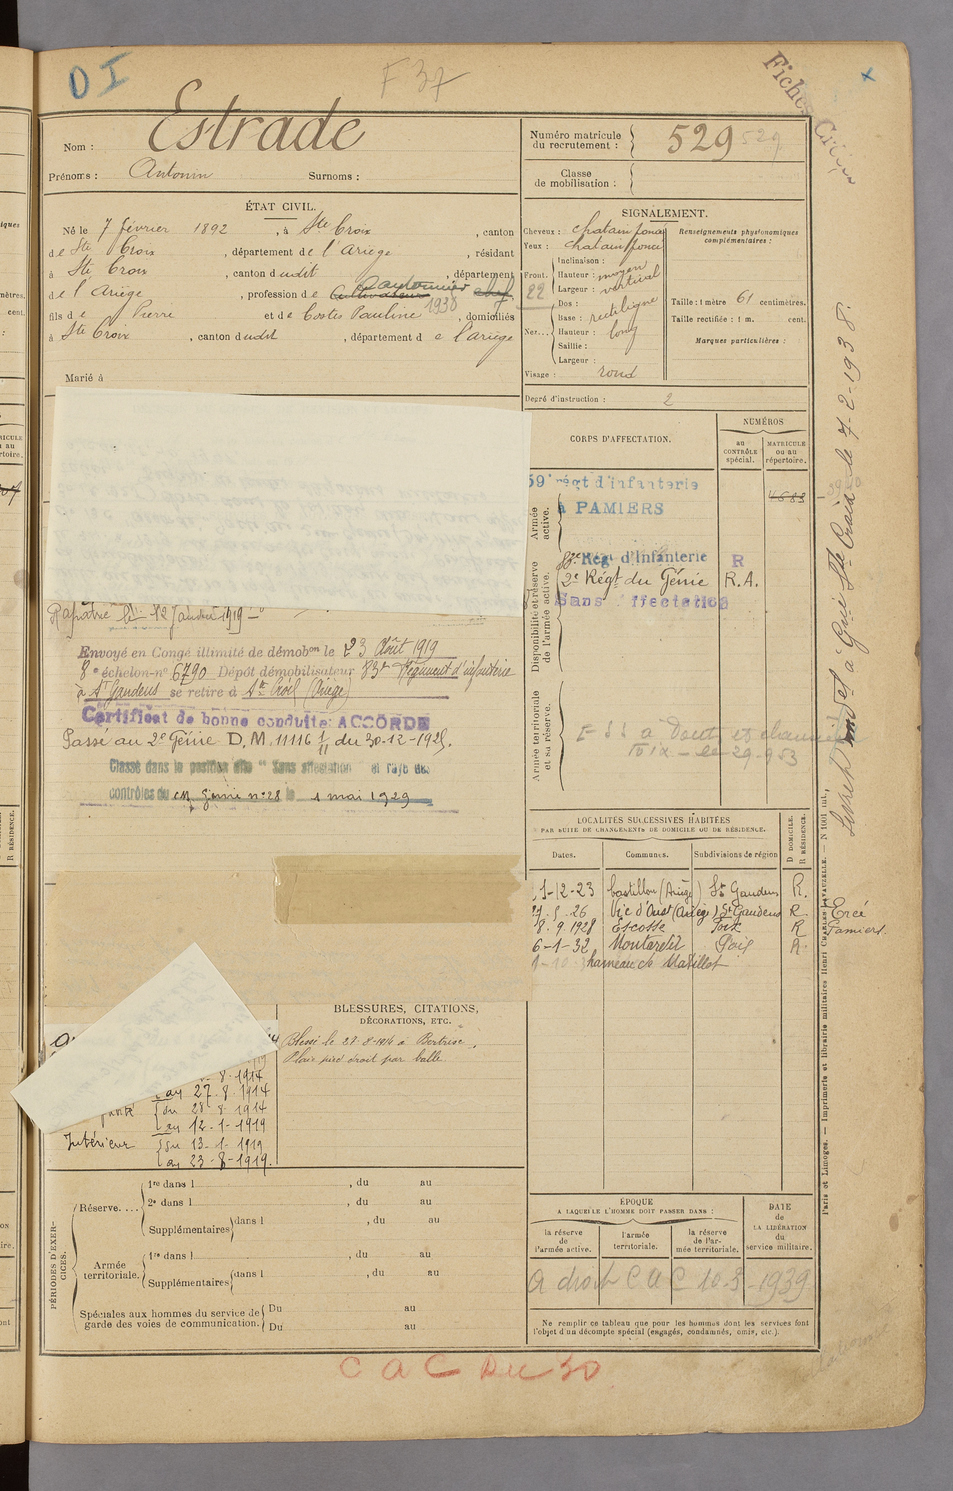 DI
F 37
Fiches
Nom : Estrade
Prénoms : Antonin Surnoms :
Numéro matricule
du recrutement : 529 529
Classe
de mobilisation :
ÉTAT CIVIL.
Né le 7 février 1892, à Ste Croix, canton
de Ste Croix, département de l'Ariège, résidant
à Ste Croix, canton dudit, département
de l'Ariège, profession de cultivateur Cantonnier chef
1938
fils de Pierre et de Costes Pauline, domiciliés
à Ste Croix, canton dudit, département de l'ariège
Marié à
SIGNALEMENT.
Cheveux : chatain foncé
Yeux : chatain foncé
Inclinaison :
Front. Hauteur : moyen
Largeur : vertical
22
Dos :
Base : rectiligne
Nez... Hauteur : long
Saillie :
Largeur :
Visage : rond
Renseignements physionomiques
complémentaires :
Taille : 1 mètre 61 centimètres.
Taille rectifiée : 1 m. cent.
Marques particulières :
Degré d'instruction : 2
CORPS D'AFFECTATION.
NUMÉROS
au
CONTRÔLE
spécial.
MATRICULE
ou au
répertoire.
Armée
active.
59e régt d'infanterie
à PAMIERS
4683
Disponibilité et réserve
de l'armée active.
83e Régt d'Infanterie R
2e Régt du Génie R.A.
Sans affectation
Armée territoriale
et sa réserve.
Foix - le 29-9-53
Rapatrié le 12 Janvier 1919
Envoyé en Congé illimité de démobon le 23 Août 1919
8e échelon-no 6790 Dépôt démobilisateur 83e Régiment d'infanterie
à St Gaudens se retire à Ste Croix (Ariège)
Certificat de bonne conduite ACCORDÉ
Passé au 2e Génie D.M. 11116 1/11 du 30-12-1925.
Classé dans la position dite "Sans affectation" et rayé des
contrôles du CM Génie no 28 le 1 mai 1929
LOCALITÉS SUCCESSIVES HABITÉES
PAR SUITE DE CHANGEMENTS DE DOMICILE OU DE RÉSIDENCE.
Dates. Communes. Subdivisions de région
D DOMICILE.
R RÉSIDENCE.
1-12-23 Castillon (Ariège) St Gaudens R.
Vic d'Oust (Ariège) St Gaudens R Ercé
8.9.1928 Escosse Foix R Pamiers.
6-1-32 Montardit Foix R
hameau de
BLESSURES, CITATIONS,
DÉCORATIONS, ETC.
Blessé le 27-8-1914 à Bertrix.
Plaie pied droit par balle
8.1914
au 27.8.1914
du 28 8 1914
au 12-1-1919
Intérieur du 13-1-1919
au 23-8-1919.
PÉRIODES D'EXERCICES.
Réserve.... 1re dans l , du au
2e dans l , du au
Supplémentaires dans l , du au
Armée
territoriale. 1re dans l , du au
Supplémentaires dans l , du au
Spéciales aux hommes du service de
garde des voies de communication. Du au
Du au
ÉPOQUE
A LAQUELLE L'HOMME DOIT PASSER DANS :
la réserve
de
l'armée active.
l'armée
territoriale.
la réserve
de l'ar-
mée territoriale.
DATE
de
LA LIBÉRATION
du
service militaire.
A droit C A C 10-3-1939
Ne remplir ce tableau que pour les hommes dont les services font
l'objet d'un décompte spécial (engagés, condamnés, omis, etc.).
Paris et Limoges. — Imprimerie et librairie militaires Henri CHARLES-LAVAUZELLE.
C A C Du 50